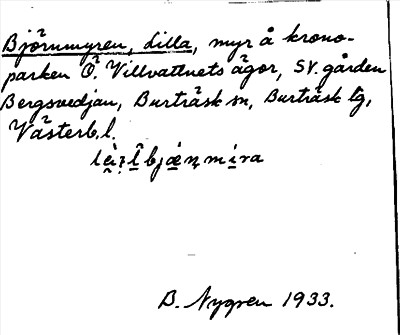 Björnmyren, lilla, myr å krono-
parken Ö. Villvattnets ägor, SV. gården
Bergsvedjan, Burträsk sn, Burträsk tg,
Västerb. l.
B. Nygren 1933.